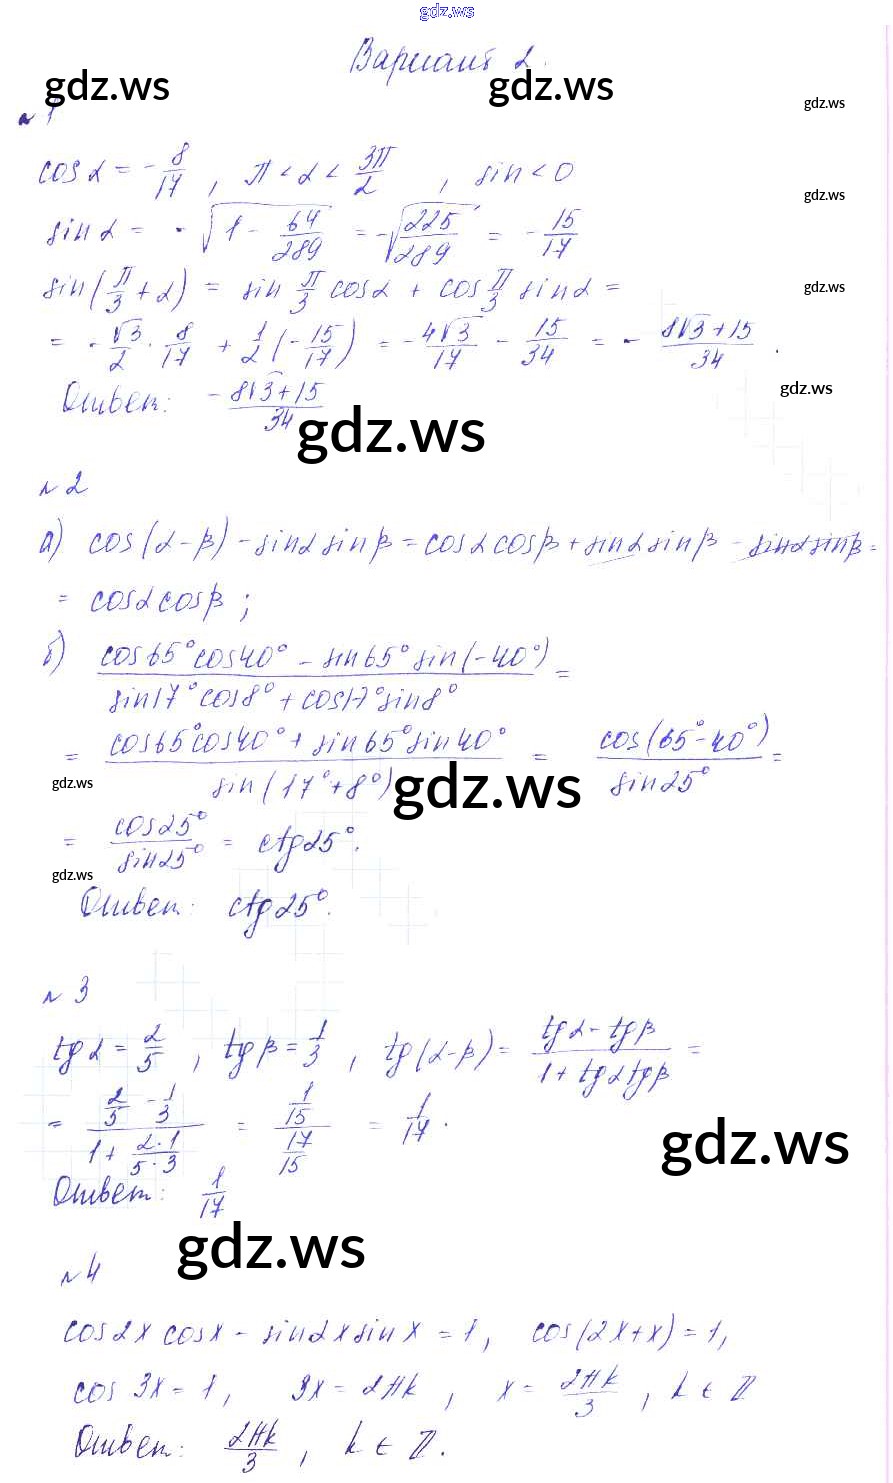 gdz.ws
Вариант 2.
gdz.ws gdz.ws gdz.ws
№ 1
cos α = - 8/17 , π < α < 3π/2 , sin < 0
gdz.ws
sin α = - √(1 - 64/289) = -√(225/289) = - 15/17
sin(π/3 + α) = sin π/3 cos α + cos π/3 sin α =
gdz.ws
= - √3/2 · 8/17 + 1/2 (- 15/17) = - 4√3/17 - 15/34 = - (8√3 + 15)/34 .
gdz.ws
Ответ: - (8√3 + 15)/34
gdz.ws
№ 2
а) cos(α - β) - sin α sin β = cos α cos β + sin α sin β - sin α sin β =
= cos α cos β ;
б) (cos 65° cos 40° - sin 65° sin(-40°))/(sin 17° cos 8° + cos 17° sin 8°) =
= (cos 65° cos 40° + sin 65° sin 40°)/(sin(17° + 8°)) = cos(65° - 40°)/sin 25° =
gdz.ws gdz.ws
= cos 25°/sin 25° = ctg 25°.
gdz.ws
Ответ: ctg 25°.
№ 3
tg α = 2/5 , tg β = 1/3 , tg(α - β) = (tg α - tg β)/(1 + tg α tg β) =
= (2/5 - 1/3)/(1 + (2·1)/(5·3)) = (1/15)/(17/15) = 1/17 .
gdz.ws
Ответ: 1/17
gdz.ws
№ 4
cos 2x cos x - sin 2x sin x = 1, cos(2x + x) = 1,
cos 3x = 1, 3x = 2πk , x = 2πk/3 , k ∈ Z
Ответ: 2πk/3 , k ∈ Z.